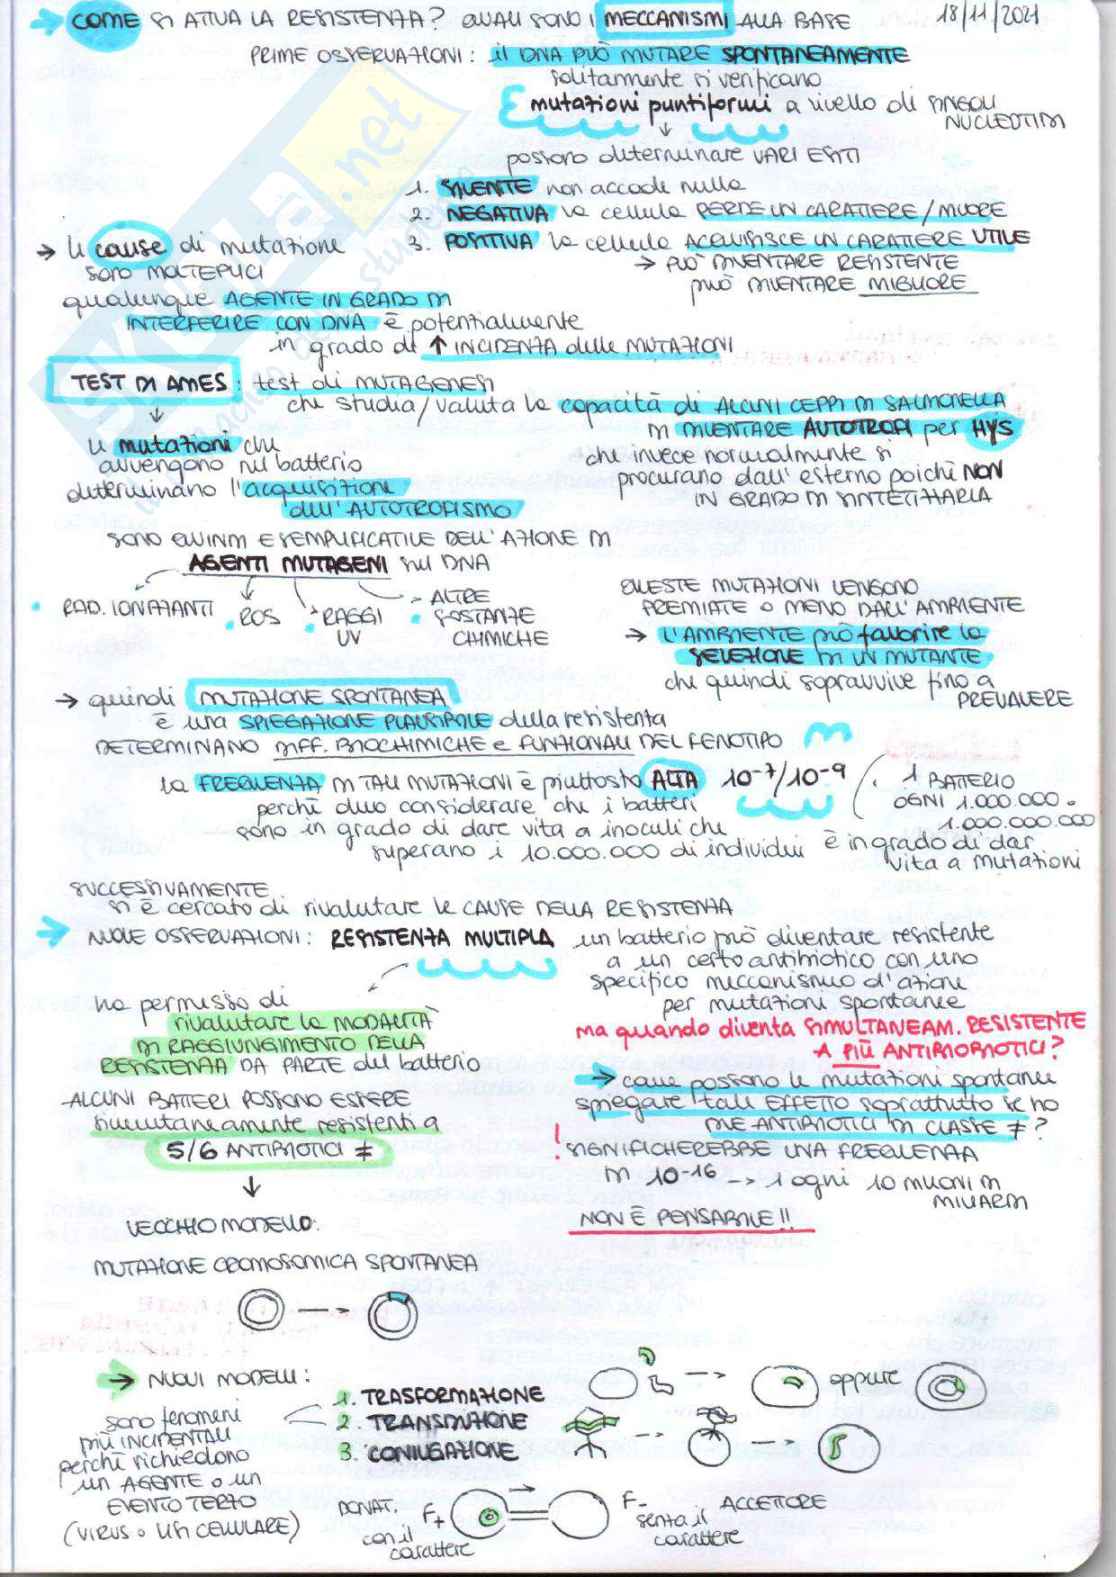 → COME SI ATTUA LA RESISTENZA? QUALI SONO I MECCANISMI ALLA BASE 18/11/2021
PRIME OSSERVAZIONI: il DNA PUÒ MUTARE SPONTANEAMENTE
solitamente si verificano
mutazioni puntiformi a livello di SINGOLI
NUCLEOTIDI
↓
possono determinare VARI ESITI
1. SILENTE non accade nulla
2. NEGATIVA la cellula PERDE UN CARATTERE / MUORE
3. POSITIVA la cellula ACQUISISCE UN CARATTERE UTILE
→ PUÒ DIVENTARE RESISTENTE
può DIVENTARE MIGLIORE
→ le cause di mutazione
sono MOLTEPLICI
qualunque AGENTE IN GRADO DI
INTERFERIRE CON DNA è potenzialmente
in grado di ↑ INCIDENZA delle MUTAZIONI
TEST DI AMES: test di MUTAGENESI
che studia/valuta la capacità di ALCUNI CEPPI DI SALMONELLA
DI DIVENTARE AUTOTROFI per HYS
che invece normalmente si
procurano dall'esterno poichè NON
IN GRADO DI SINTETIZZARLA
↓
le mutazioni che
avvengono nel batterio
determinano l'acquisizione
dell'AUTOTROFISMO
SONO QUINDI ESEMPLIFICATIVE DELL'AZIONE DI
AGENTI MUTAGENI sul DNA
• RAD. IONIZZANTI • ROS • RAGGI
UV
• ALTRE
SOSTANZE
CHIMICHE
QUESTE MUTAZIONI VENGONO
PREMIATE O MENO DALL'AMBIENTE
→ L'AMBIENTE può favorire la
SELEZIONE DI UN MUTANTE
che quindi sopravvive fino a
PREVALERE
→ quindi MUTAZIONE SPONTANEA
è una SPIEGAZIONE PLAUSIBILE della resistenza
DETERMINANO DIFF. BIOCHIMICHE e FUNZIONALI DEL FENOTIPO
la FREQUENZA DI TALI MUTAZIONI è piuttosto ALTA 10-7/10-9
perchè devo considerare che i batteri
sono in grado di dare vita a inoculi che
superano i 10.000.000 di individui
1 BATTERIO
OGNI 1.000.000 o
1.000.000.000
è in grado di dar
vita a mutazioni
SUCCESSIVAMENTE
si è cercato di rivalutare le CAUSE DELLA RESISTENZA
→ NUOVE OSSERVAZIONI: RESISTENZA MULTIPLA
un batterio può diventare resistente
a un certo antibiotico con uno
specifico meccanismo d'azione
per mutazioni spontanee
ma quando diventa SIMULTANEAM. RESISTENTE
A PIÙ ANTIBIOTICI?
→ come possono le mutazioni spontanee
spiegare tale EFFETTO soprattutto se ho
DUE ANTIBIOTICI DI CLASSE ≠ ?
! SIGNIFICHEREBBE UNA FREQUENZA
DI 10-16 --> 1 ogni 10 MILIONI DI
MILIARDI
NON È PENSABILE!!
ha permesso di
rivalutare la MODALITÀ
DI RAGGIUNGIMENTO DELLA
RESISTENZA DA PARTE del batterio
ALCUNI BATTERI POSSONO ESSERE
simultaneamente resistenti a
5/6 ANTIBIOTICI ≠
↓
VECCHIO MODELLO:
MUTAZIONE CROMOSOMICA SPONTANEA
→ NUOVI MODELLI:
1. TRASFORMAZIONE
2. TRANSDUZIONE
3. CONIUGAZIONE
oppure
sono fenomeni
più INCIDENTALI
perchè richiedono
un AGENTE o un
EVENTO TERZO
(VIRUS o LISI CELLULARE)
DONAT.
con il
carattere
F+
F-
senza il
carattere
ACCETTORE
SKUOLA.net